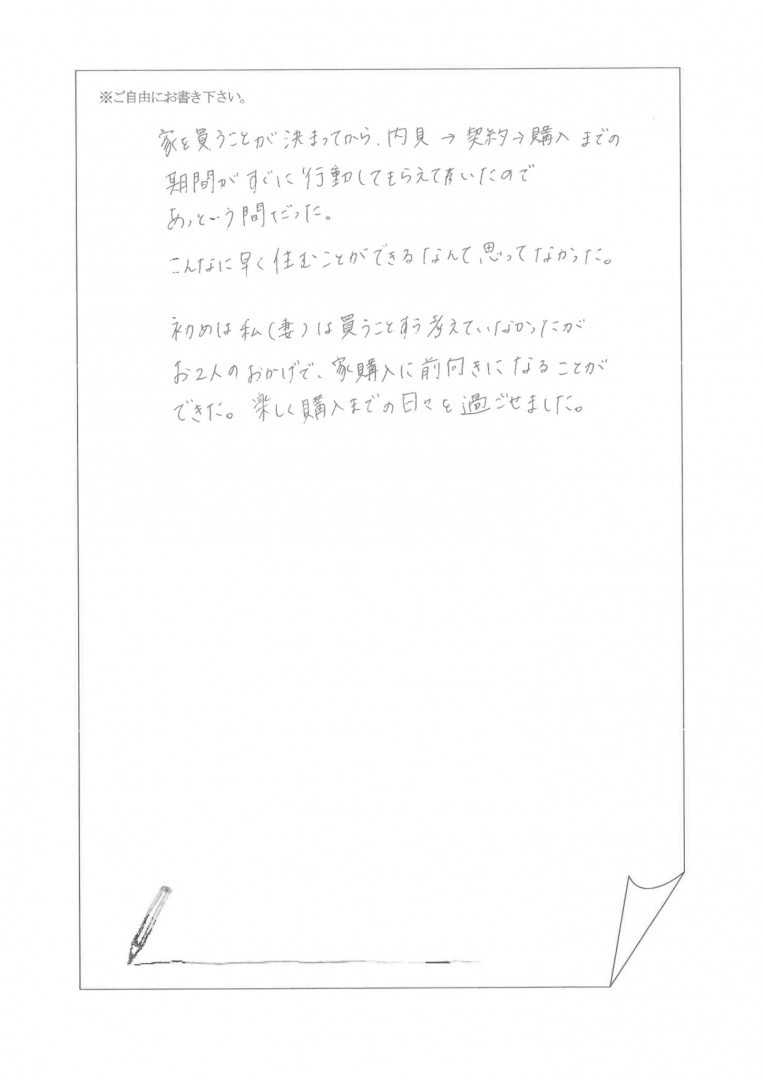 ※ご自由にお書き下さい。
家を買うことが決まってから、内見→契約→購入までの
期間がすぐに行動してもらえていたので
あっという間だった。
こんなに早く住むことができるなんて思ってなかった。
初めは私(妻)は買うことすら考えていなかったが
お2人のおかげで、家購入に前向きになることが
できた。楽しく購入までの日々を過ごせました。